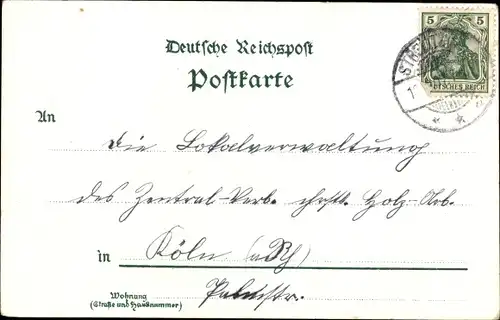 5
DEUTSCHES REICH
Deutsche Reichspost
Postkarte
An
Die Lokalverwaltung
des Zentral-Verb. chrstl. Holz-Arb.
in Köln (a/Rh)
Wohnung
(Straße und Hausnummer)
Palmstr.